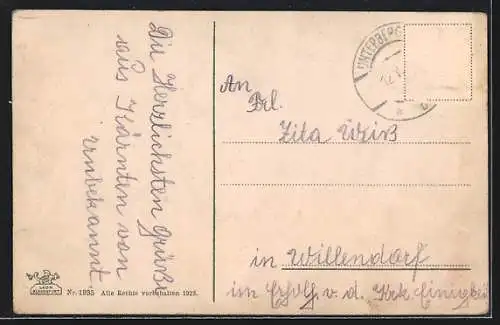 Die Herzlichsten Grüße
aus Kärnten von
unbekannt
Nr. 1935 Alle Rechte vorbehalten 1925.
UNTERBERG
An
Frl.
Zita Weiß
in Willendorf
im v. d.